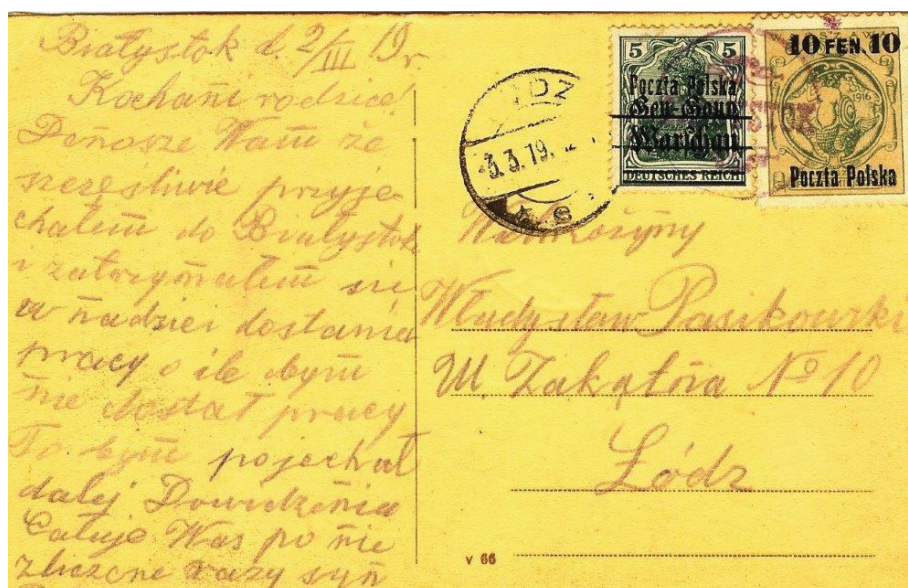 Białystok d. 2/III 19 r
Kochani rodzice
Donosze Wam że
szczęśliwie przyje-
chałem do Białystok
i zatrzymałem się
w nadziei dostania
pracy o ile bym
nie dostał pracy
To bym pojechał
dalej Dowidzenia
Całuje Was po nie
zliczone razy syn
5 5
Poczta Polska
Gen.-Gouv.
Warschau
DEUTSCHES REICH
10 FEN. 10
1916
Poczta Polska
3.3.19
Władysław Pasikowski
Ul. Zakątna № 10
Łódz
v 66